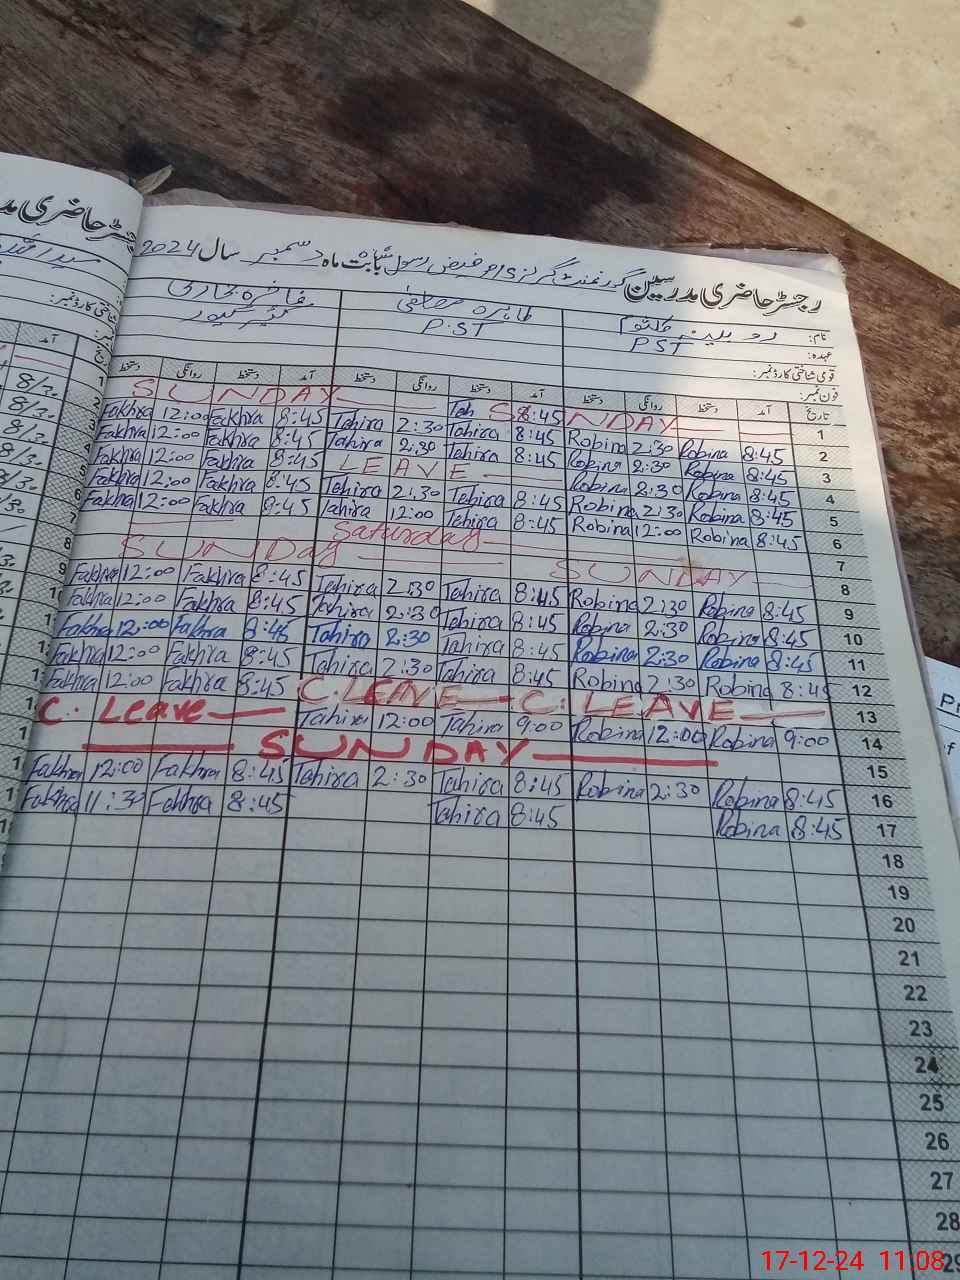 رجسٹر حاضری مدرسین گورنمنٹ گرلز فیض رسول بابت ماہ دسمبر سال 2024
نام: روبینہ کلثوم طاہرہ مصطفیٰ فاخرہ بخاری
عہدہ: PST P.ST کیئر گیور
قومی شناختی کارڈ نمبر:
فون نمبر:
تاریخ آمد دستخط روانگی دستخط آمد دستخط روانگی دستخط آمد دستخط روانگی دستخط
SUNDAY Tah 8:45 SUNDAY 1
Fakhra 12:00 Fakhra 8:45 Tahira 2:30 Tahira 8:45 Robina 2:30 Robina 8:45 2
Fakhra 12:00 Fakhra 8:45 Tahira 2:30 Tahira 8:45 Robina 2:30 Robina 8:45 3
Fakhra 12:00 Fakhra 8:45 LEAVE Robina 2:30 Robina 8:45 4
Fakhra 12:00 Fakhra 8:45 Tahira 2:30 Tahira 8:45 Robina 2:30 Robina 8:45 5
Tahira 12:00 Tahira 8:45 Robina 12:00 Robina 8:45 6
Saturday 7
SUNDAY SUNDAY 8
Fakhra 12:00 Fakhra 8:45 Tahira 2:30 Tahira 8:45 Robina 2:30 Robina 8:45 9
Fakhra 12:00 Fakhra 8:45 Tahira 2:30 Tahira 8:45 Robina 2:30 Robina 8:45 10
Fakhra 12:00 Fakhra 8:45 Tahira 2:30 Tahira 8:45 Robina 2:30 Robina 8:45 11
Fakhra 12:00 Fakhra 8:45 Tahira 2:30 Tahira 8:45 Robina 2:30 Robina 8:45 12
Fakhra 12:00 Fakhra 8:45 C. LEAVE C. LEAVE 13
C. Leave Tahira 12:00 Tahira 9:00 Robina 12:00 Robina 9:00 14
SUNDAY 15
Fakhra 12:00 Fakhra 8:45 Tahira 2:30 Tahira 8:45 Robina 2:30 Robina 8:45 16
Fakhra 11:30 Fakhra 8:45 Tahira 8:45 Robina 8:45 17
18
19
20
21
22
23
24
25
26
27
28
29
17-12-24 11:08